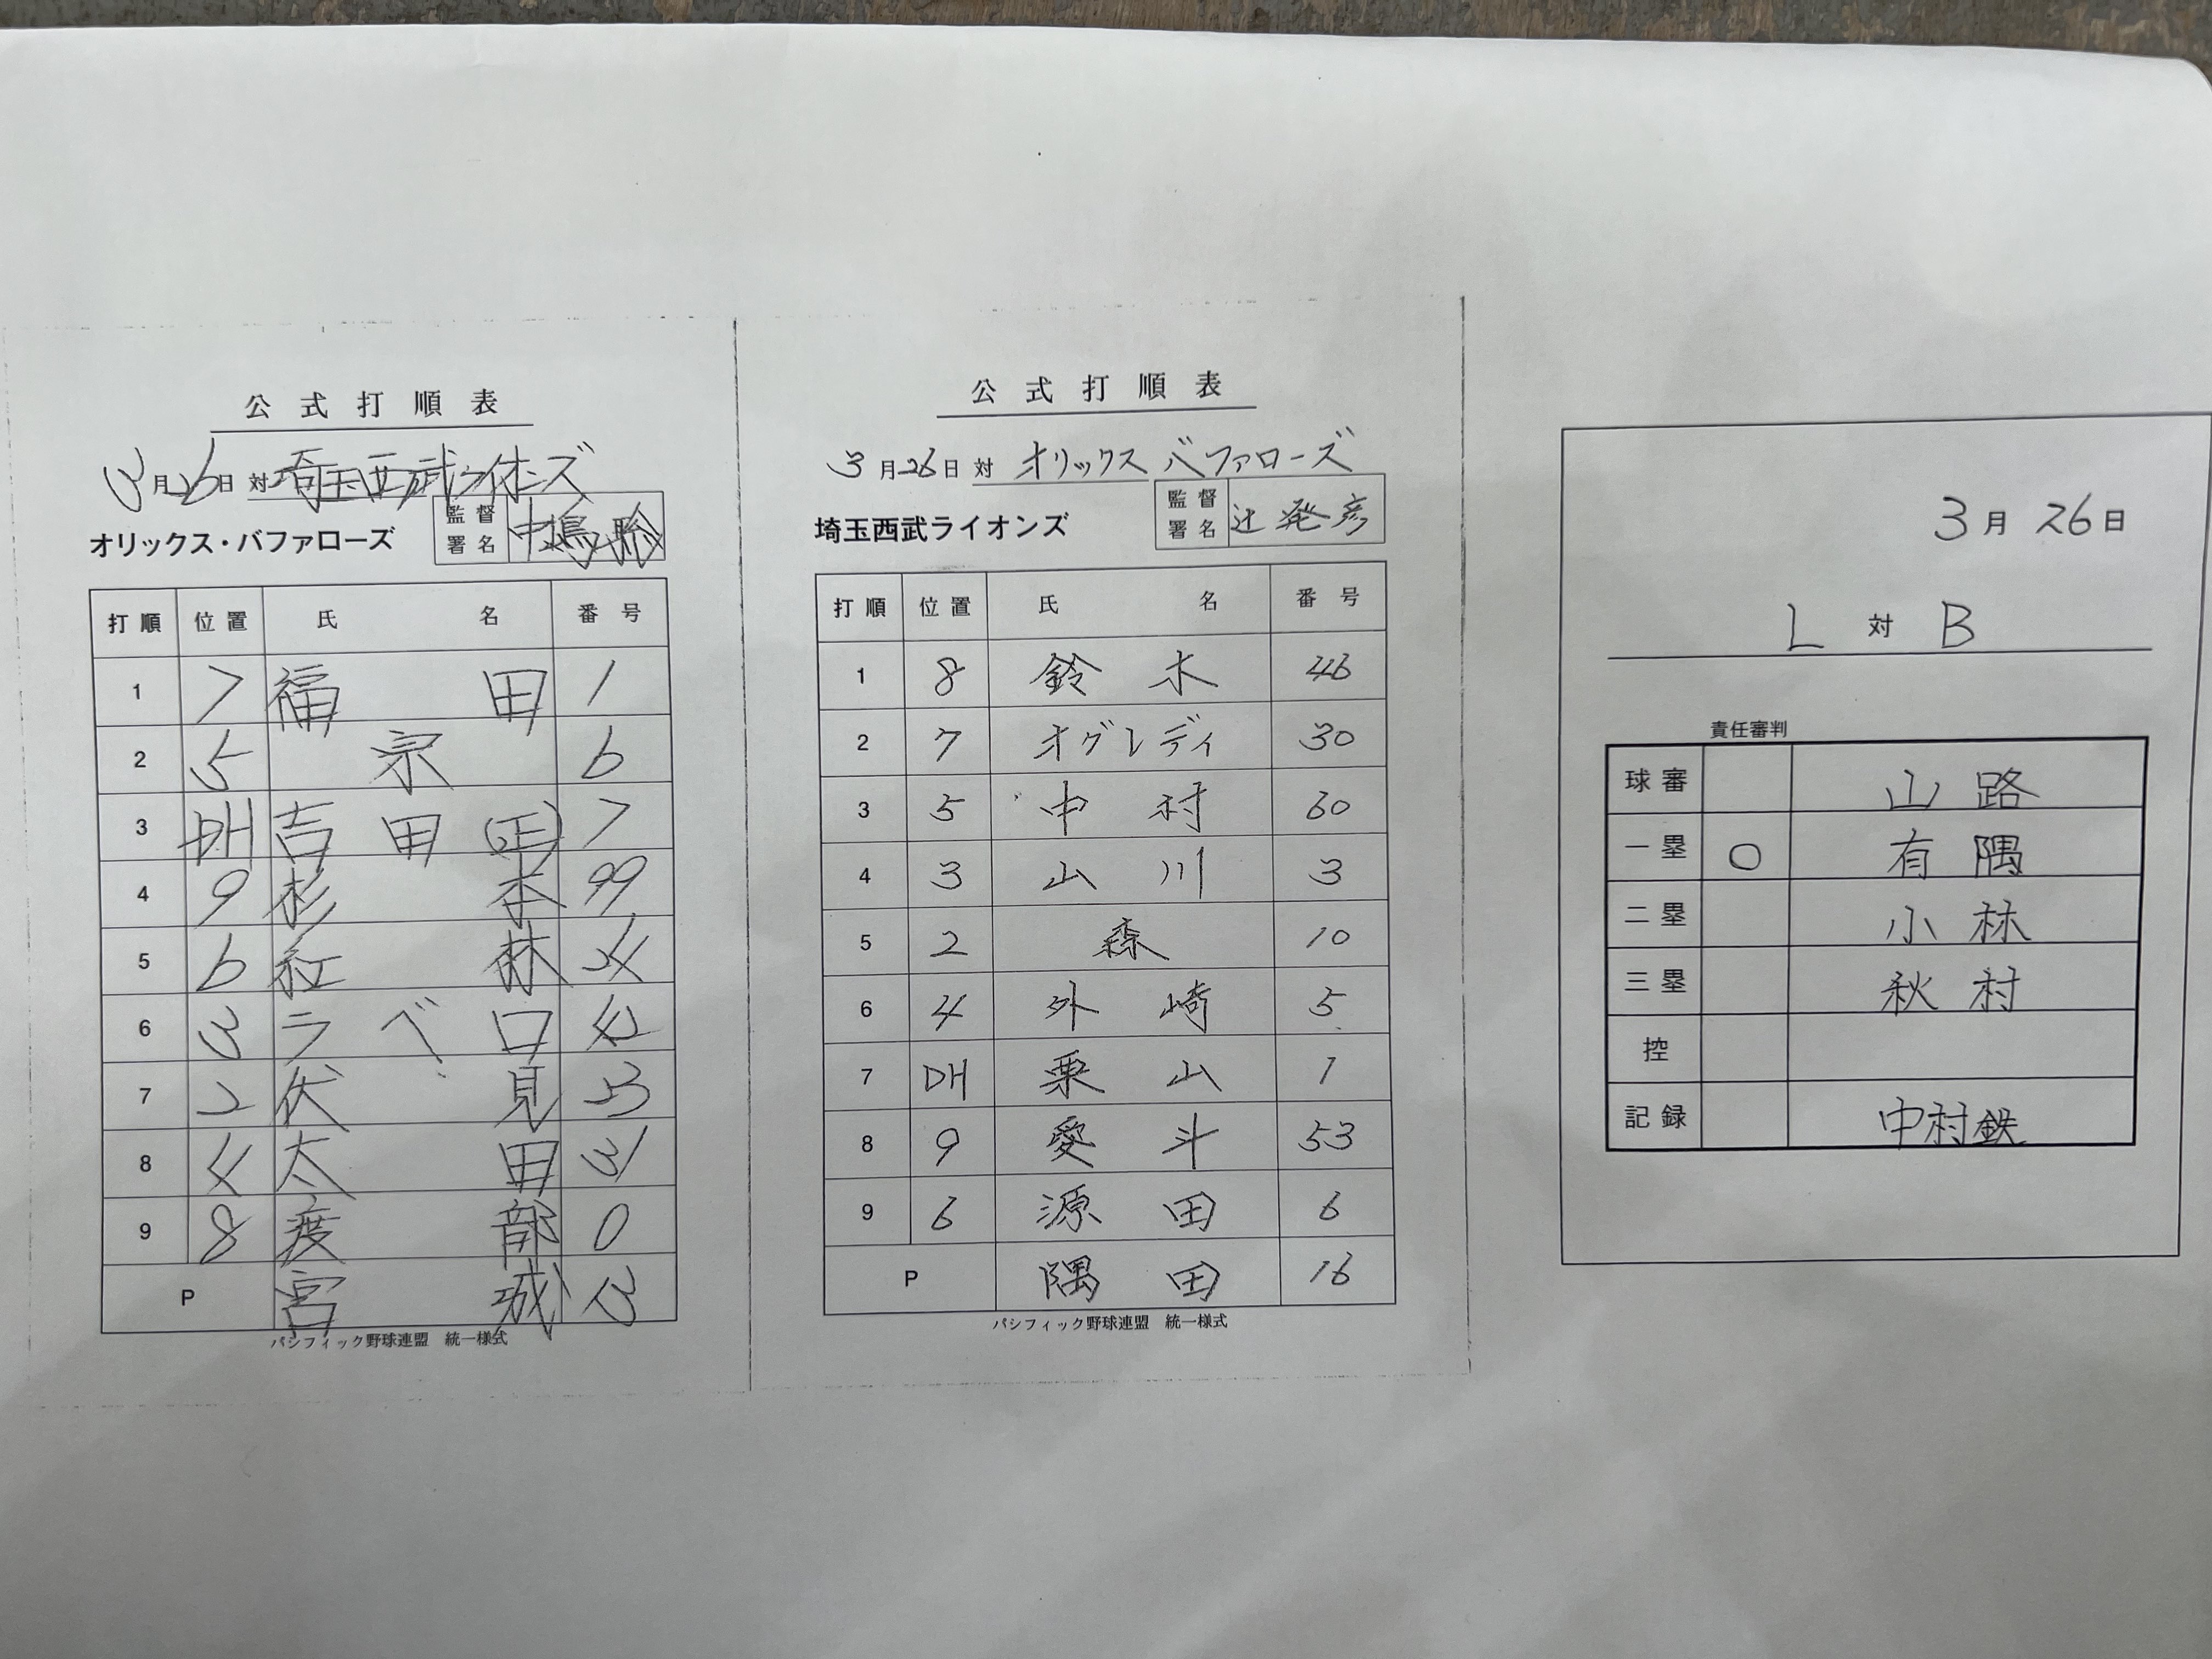 公式打順表
3月26日 対 埼玉西武ライオンズ
オリックス・バファローズ 監督署名 中嶋聡
打順 位置 氏名 番号
1 7 福田 1
2 5 宗 6
3 DH 吉田(正) 7
4 9 杉本 99
5 6 紅林 24
6 3 ラベロ 42
7 2 伏見 23
8 4 太田 31
9 8 渡部 0
P 宮城 13
パシフィック野球連盟 統一様式
公式打順表
3月26日 対 オリックスバファローズ
埼玉西武ライオンズ 監督署名 辻発彦
打順 位置 氏名 番号
1 8 鈴木 46
2 7 オグレディ 30
3 5 中村 60
4 3 山川 3
5 2 森 10
6 4 外崎 5
7 DH 栗山 1
8 9 愛斗 53
9 6 源田 6
P 隅田 16
パシフィック野球連盟 統一様式
3月26日
L 対 B
責任審判
球審 山路
一塁 ○ 有隅
二塁 小林
三塁 秋村
控
記録 中村鉄